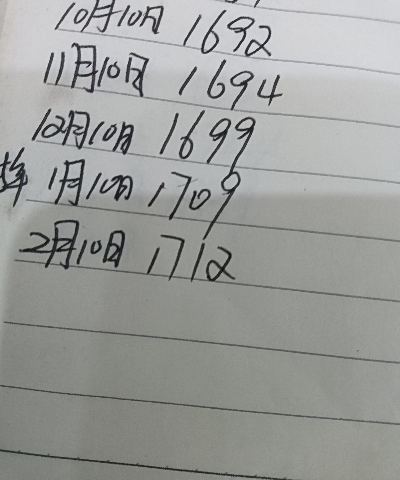 10月10日 1692
11月10日 1694
12月10日 1699
1月10日 1709
2月10日 1712